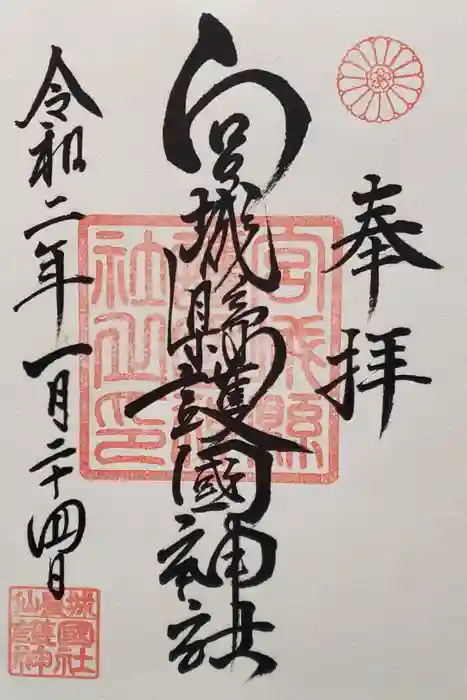 奉拝
宮城縣護國神社
令和二年一月二十四日
宮城縣護國神社之印